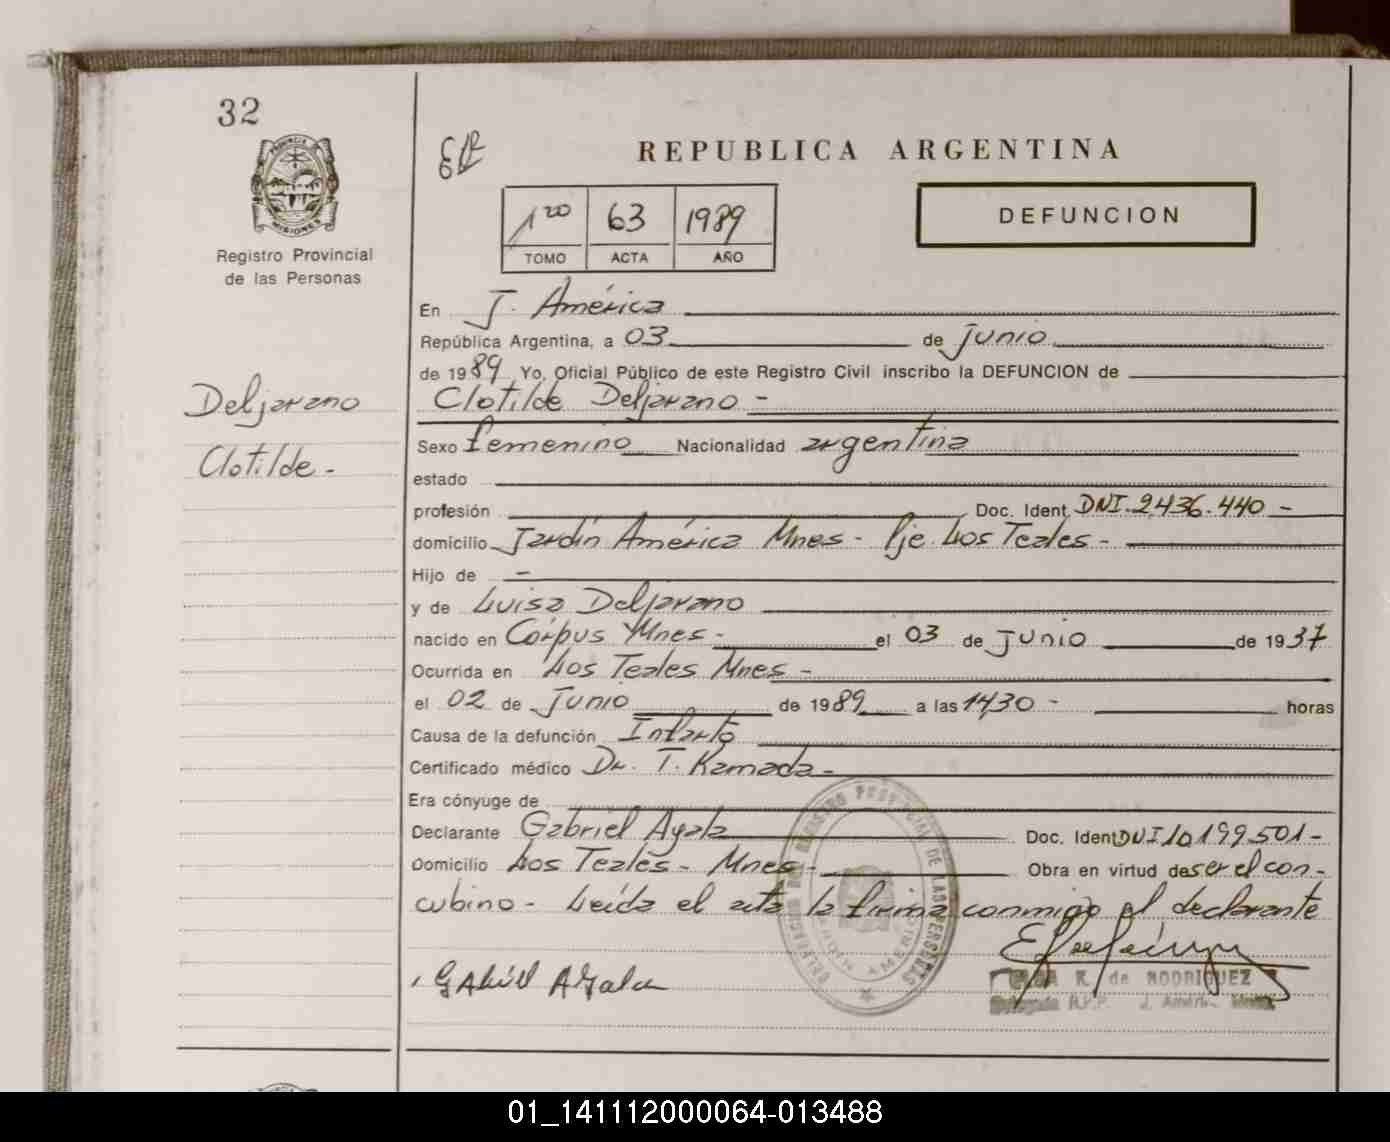 32
PROVINCIA DE
MISIONES
Registro Provincial
de las Personas
REPUBLICA ARGENTINA
DEFUNCION
1 20 63 1989
TOMO ACTA AÑO
En J. América
República Argentina, a 03 de Junio
de 1989 Yo, Oficial Público de este Registro Civil inscribo la DEFUNCION de
Deljarano
Clotilde Deljarano -
Clotilde -
Sexo femenino Nacionalidad argentina
estado
profesión Doc. Ident. DNI. 2.436.440 -
domicilio Jardín América Mnes - Pje. Los Teales -
Hijo de -
y de Luisa Deljarano
nacido en Córpus Mnes - el 03 de Junio de 1937
Ocurrida en Los Teales Mnes -
el 02 de Junio de 1989 a las 14,30 - horas
Causa de la defunción Infarto
Certificado médico Dr. T. Kamada -
Era cónyuge de
Declarante Gabriel Ayala Doc. Ident DNI 10.199.501 -
Domicilio Los Teales - Mnes - Obra en virtud de ser el con-
cubino - Leída el acta la firma conmigo el declarante
Gabriel Ayala
R. de RODRIGUEZ
J. Améric
REGISTRO PROVINCIAL DE LAS PERSONAS
01_141112000064-013488